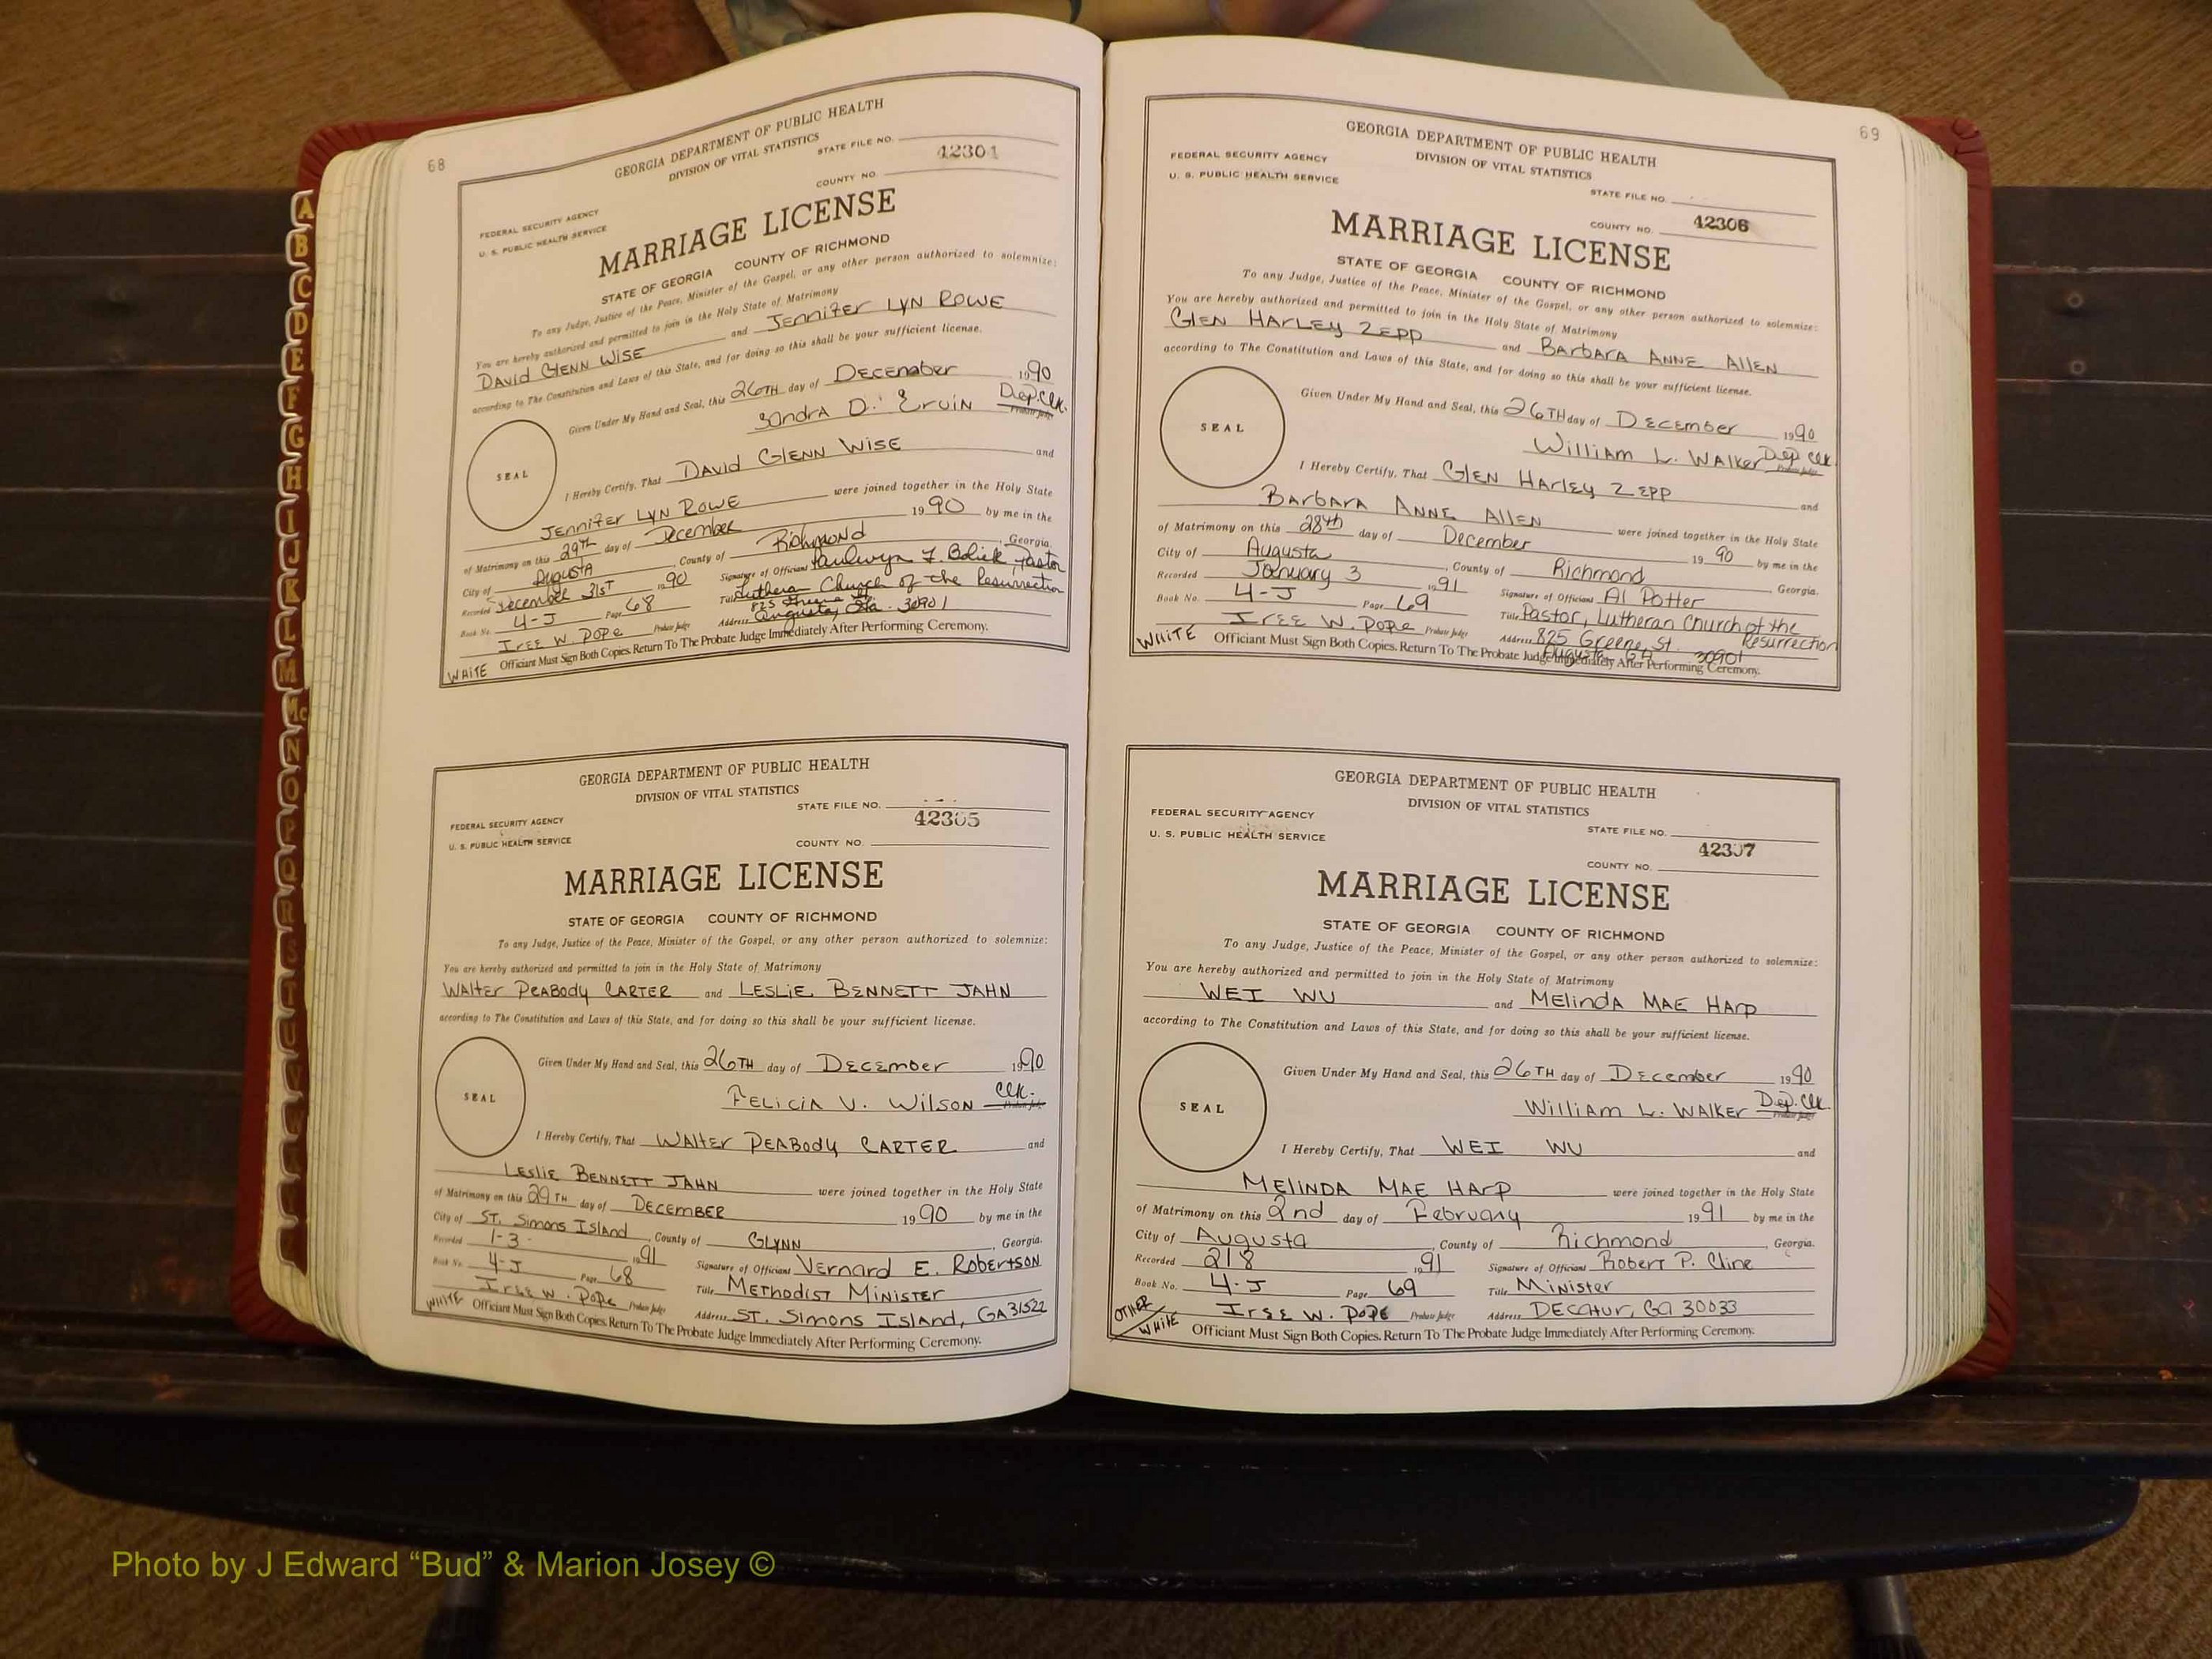 68
GEORGIA DEPARTMENT OF PUBLIC HEALTH
DIVISION OF VITAL STATISTICS
STATE FILE NO.
42304
COUNTY NO.
FEDERAL SECURITY AGENCY
U. S. PUBLIC HEALTH SERVICE
MARRIAGE LICENSE
STATE OF GEORGIA COUNTY OF RICHMOND
To any Judge, Justice of the Peace, Minister of the Gospel, or any other person authorized to solemnize:
You are hereby authorized and permitted to join in the Holy State of Matrimony
DAVID GLENN WISE and JENNIFER LYN ROWE
according to The Constitution and Laws of this State, and for doing so this shall be your sufficient license.
Given Under My Hand and Seal, this 26TH day of DECEMBER 1990
SANDRA D. ERVIN Dep. Clk. Probate Judge
SEAL
I Hereby Certify, That DAVID GLENN WISE and
JENNIFER LYN ROWE were joined together in the Holy State
of Matrimony on this 29TH day of December 1990 by me in the
City of Augusta, County of Richmond, Georgia.
Recorded December 31ST 1990 Signature of Official Paulwyn L. Boliek, Pastor
Book No. 4-J Page 68 Title Lutheran Church of the Resurrection
825 Greene St.
Address Augusta, Ga. 30901
Iree W. Pope Probate Judge
WHITE Officiant Must Sign Both Copies. Return To The Probate Judge Immediately After Performing Ceremony.
GEORGIA DEPARTMENT OF PUBLIC HEALTH
DIVISION OF VITAL STATISTICS
STATE FILE NO.
42305
FEDERAL SECURITY AGENCY
U. S. PUBLIC HEALTH SERVICE
COUNTY NO.
MARRIAGE LICENSE
STATE OF GEORGIA COUNTY OF RICHMOND
To any Judge, Justice of the Peace, Minister of the Gospel, or any other person authorized to solemnize:
You are hereby authorized and permitted to join in the Holy State of Matrimony
WALTER PEABODY CARTER and LESLIE BENNETT JAHN
according to The Constitution and Laws of this State, and for doing so this shall be your sufficient license.
Given Under My Hand and Seal, this 26TH day of DECEMBER 1990
FELICIA V. WILSON Clk. Probate Judge
SEAL
I Hereby Certify, That WALTER PEABODY CARTER and
LESLIE BENNETT JAHN were joined together in the Holy State
of Matrimony on this 29TH day of DECEMBER 1990 by me in the
City of ST. Simons Island, County of GLYNN, Georgia.
Recorded 1-3- 1991 Signature of Officiant VERNARD E. ROBERTSON
Book No. 4-J Page 68 Title METHODIST MINISTER
Iree W. Pope Probate Judge Address ST. SIMONS ISLAND, GA 31522
WHITE Officiant Must Sign Both Copies. Return To The Probate Judge Immediately After Performing Ceremony.
69
GEORGIA DEPARTMENT OF PUBLIC HEALTH
DIVISION OF VITAL STATISTICS
FEDERAL SECURITY AGENCY
U. S. PUBLIC HEALTH SERVICE
STATE FILE NO.
COUNTY NO. 42306
MARRIAGE LICENSE
STATE OF GEORGIA COUNTY OF RICHMOND
To any Judge, Justice of the Peace, Minister of the Gospel, or any other person authorized to solemnize:
You are hereby authorized and permitted to join in the Holy State of Matrimony
GLEN HARLEY ZEPP and BARBARA ANNE ALLEN
according to The Constitution and Laws of this State, and for doing so this shall be your sufficient license.
Given Under My Hand and Seal, this 26TH day of December 1990
William L. Walker Dep Clk Probate Judge
SEAL
I Hereby Certify, That GLEN HARLEY ZEPP and
BARBARA ANNE ALLEN were joined together in the Holy State
of Matrimony on this 28th day of December 1990 by me in the
City of Augusta, County of Richmond, Georgia.
Recorded January 3 1991 Signature of Officiant Al Potter
Book No. 4-J Page 69 Title Pastor, Lutheran Church of the Resurrection
Iree W. Pope Probate Judge Address 825 Greene, St.
Augusta, GA 30901
WHITE Officiant Must Sign Both Copies. Return To The Probate Judge Immediately After Performing Ceremony.
GEORGIA DEPARTMENT OF PUBLIC HEALTH
DIVISION OF VITAL STATISTICS
FEDERAL SECURITY AGENCY
U. S. PUBLIC HEALTH SERVICE
STATE FILE NO.
42307
COUNTY NO.
MARRIAGE LICENSE
STATE OF GEORGIA COUNTY OF RICHMOND
To any Judge, Justice of the Peace, Minister of the Gospel, or any other person authorized to solemnize:
You are hereby authorized and permitted to join in the Holy State of Matrimony
WEI WU and MELINDA MAE HARP
according to The Constitution and Laws of this State, and for doing so this shall be your sufficient license.
Given Under My Hand and Seal, this 26TH day of December 1990
William L. Walker Dep. Clk. Probate Judge
SEAL
I Hereby Certify, That WEI WU and
MELINDA MAE HARP were joined together in the Holy State
of Matrimony on this 2nd day of February 1991 by me in the
City of Augusta, County of Richmond, Georgia.
Recorded 218 1991 Signature of Officiant Robert P. Cline
Book No. 4-J Page 69 Title Minister
Iree W. Pope Probate Judge Address DECATUR, GA 30033
OTHER/WHITE Officiant Must Sign Both Copies. Return To The Probate Judge Immediately After Performing Ceremony.
A
B
C
D
E
F
G
H
I
J
K
L
M
Mc
N
O
P
Q
R
S
T
U
V
W
Photo by J Edward “Bud” & Marion Josey ©